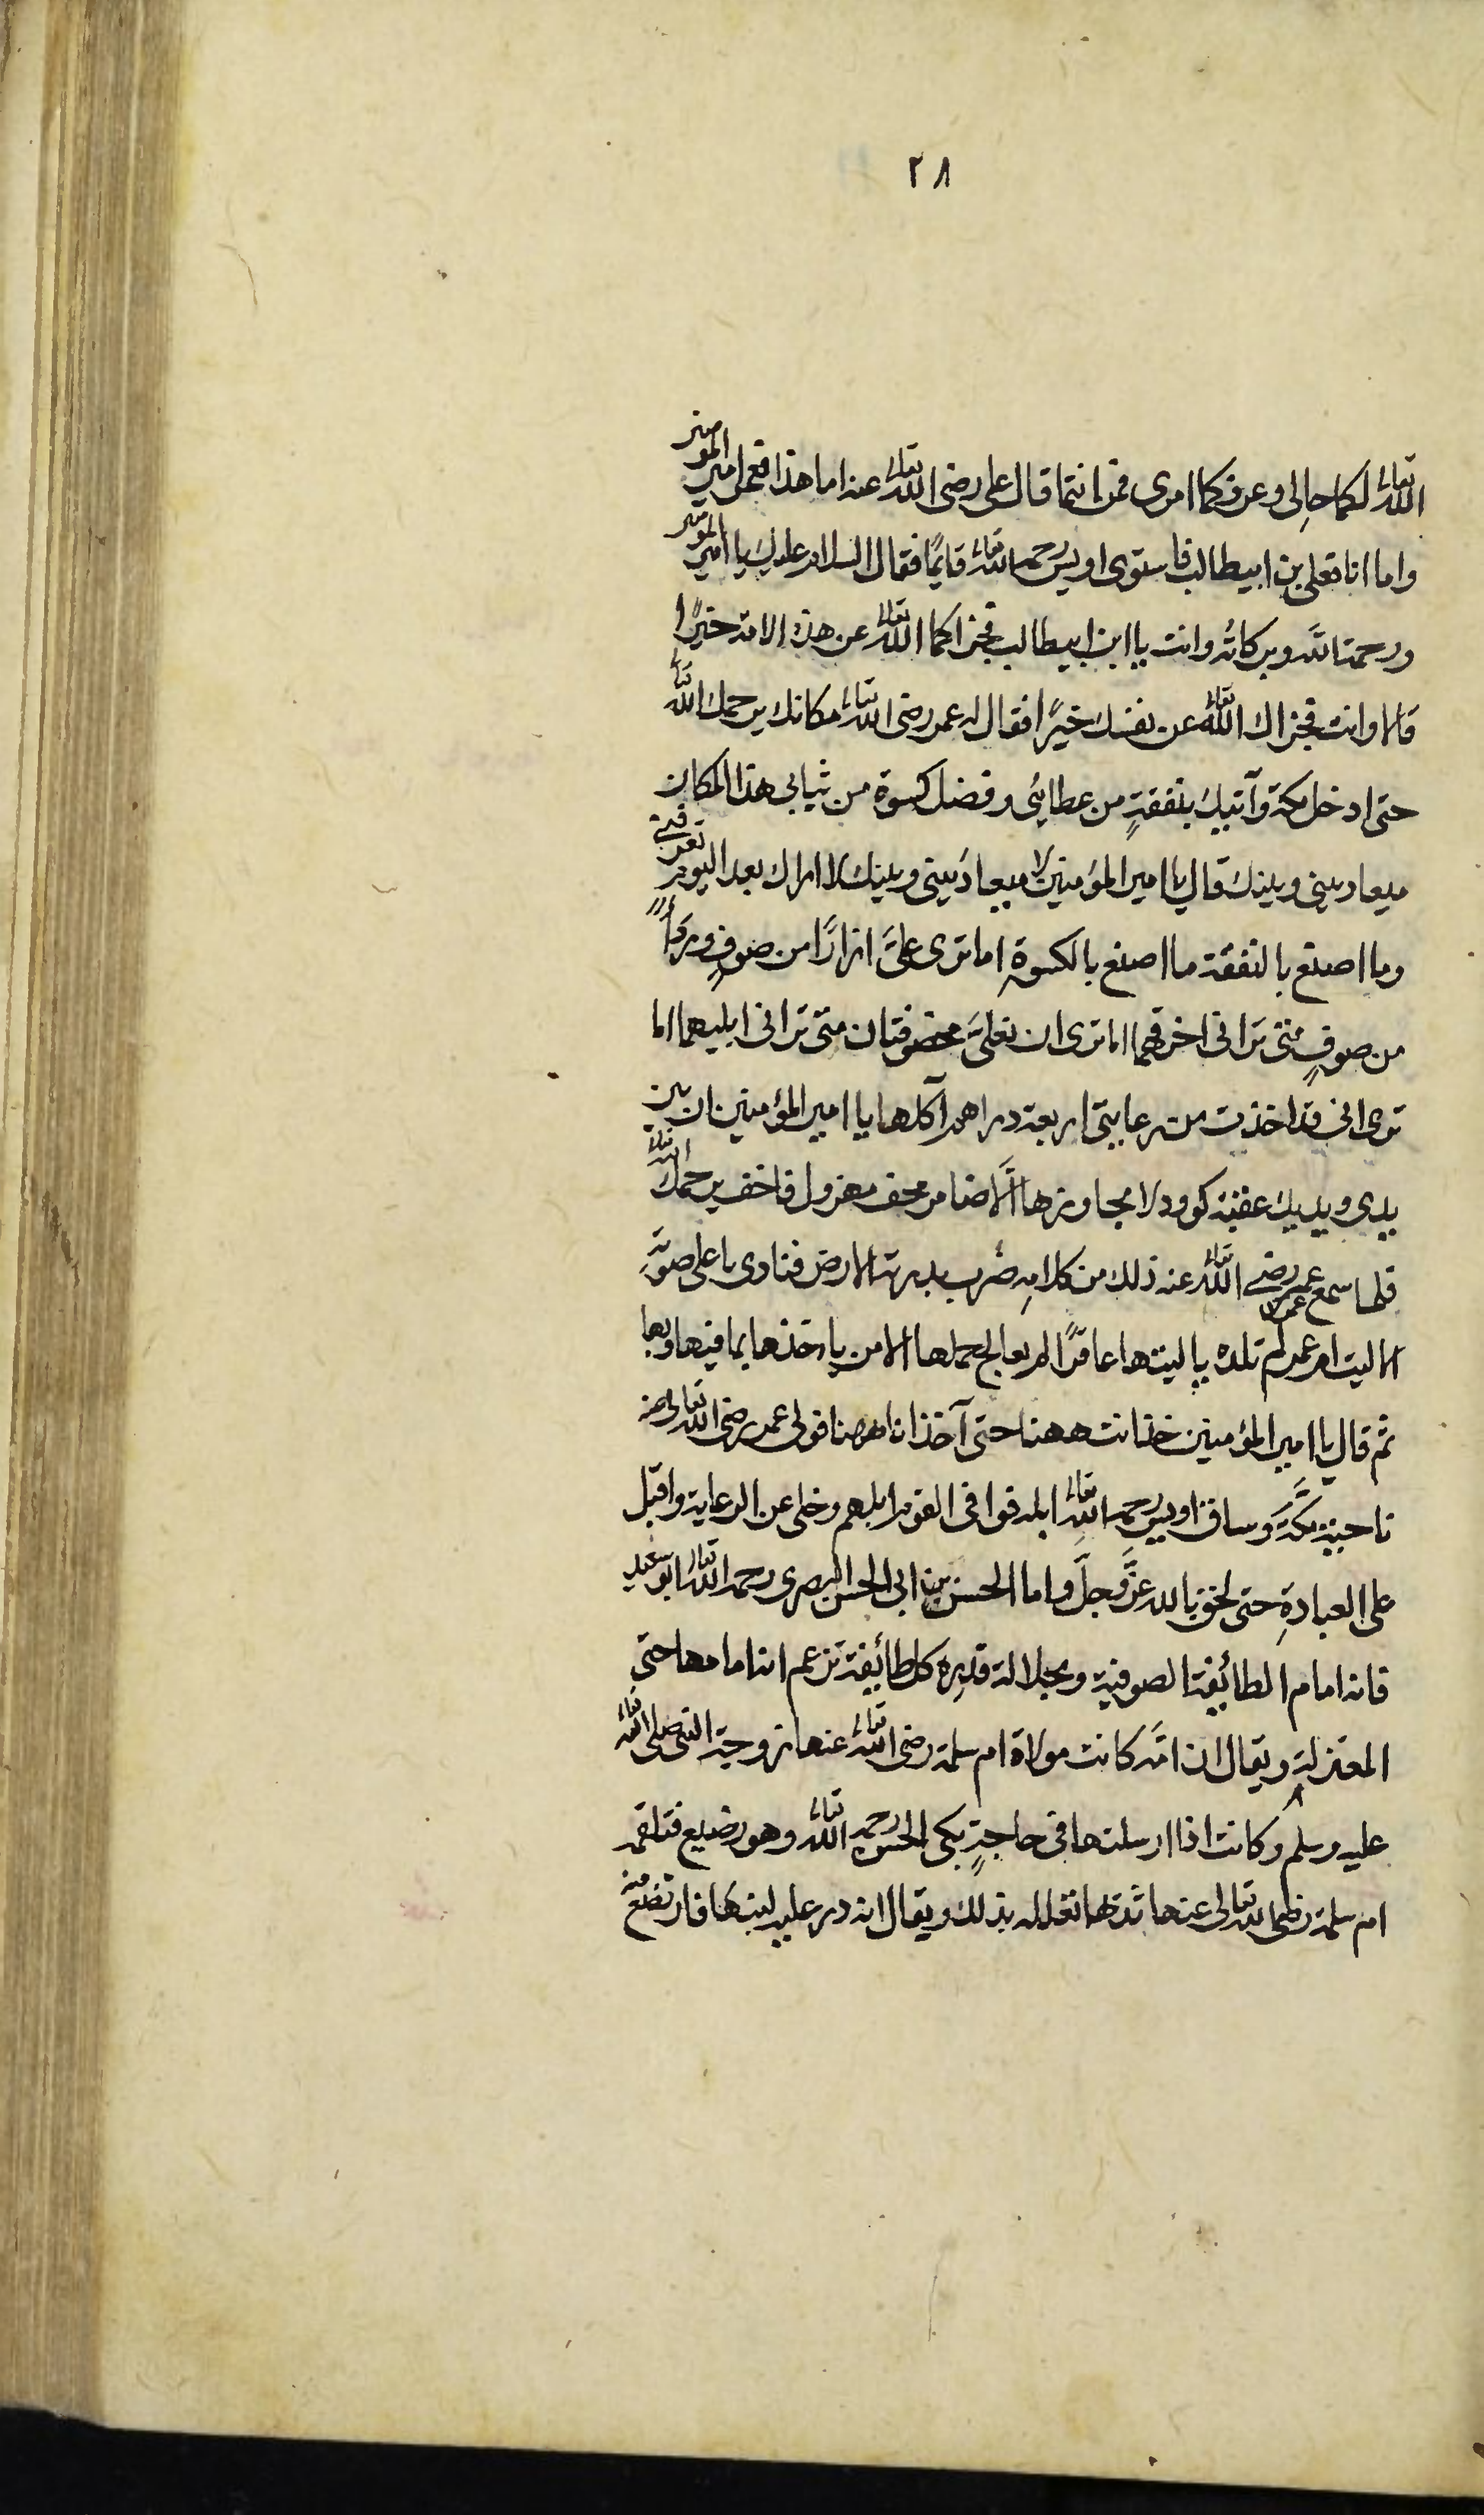 ٢٨
الله تعالى لكما حالى وعرفكما امرى فمن انتما قال على رضى الله تعالى عنه اما هذا فعمر امير المؤمنين
واما انا فعلى بن ابيطالب فاستوى اويس رحمه الله تعالى قايمًا فقال السلام عليك يا امير المؤمنين
ورحمة الله وبركاته وانت يا ابن ابيطالب فجزاكما الله تعالى عن هذه الامة خيرًا
قالا وانت فجزاك الله تعالى عن نفسك خيرًا فقال له عمر رضى الله تعالى مكانك يرحمك الله تعالى
حتى ادخل مكة وآتيك بنفقةٍ من عطائى وفضل كسوة من ثيابى هذا المكان
ميعاد بينى وبينك قال يا امير المؤمنين لا ميعاد بينى وبينك لا اراك بعد اليوم تعرفنى
وما اصنع بالنفقة ما اصنع بالكسوة اما ترى علىَّ ازارًا من صوفٍ ورداءً
من صوفٍ متى ترانى اخرقهما اما ترى ان نعلىَّ مخصوفتان متى ترانى ابليهما اما
ترى انى قد اخذت من رعايتى اربعة دراهم آكلها يا امير المؤمنين ان بين
يدى ويديك عقبة كوود لا يجاوزها الّا ضامر مخف مهزول فاخف يرحمك الله تعالى
فلما سمع عمر رضى الله تعالى عنه ذلك من كلامه ضرب بدرته الارض فنادى باعلى صوته
الا ليت ام عمر لم تلده عمر يا ليتها عاقرًا لم يعالج حملها الا من ياخذها بما فيها ولها
ثم قال يا امير المؤمنين خذ انت ههنا حتى آخذ انا ههنا فولى عمر رضى الله تعالى عنه
ناحية مكَّة وساق اويس رحمه الله تعالى ابله فوافى القوم ابلهم وخلى عن الرعاية واقبل
على العبادةِ حتى لحق بالله عزَّ وجلَّ واما الحسن بن ابى الحسن البصرى رحمه الله تعالى ابو سعيد
فانه امام الطائيفة الصوفية وبجلالة قدره كل طائيفة تزعم انه امامها حتى
المعتزلة ويقال ان امّه كانت مولاة ام سلمة رضى الله تعالى عنها زوجة النبى صلى الله تعالى
عليه وسلم وكانت اذا ارسلتها فى حاجةٍ بكى الحسن رحمه الله تعالى وهو رضيع فتلقمه
ام سلمة رضى الله تعالى عنها ثديها تعلله بذلك ويقال انه در عليه لبنها فارتضع منه